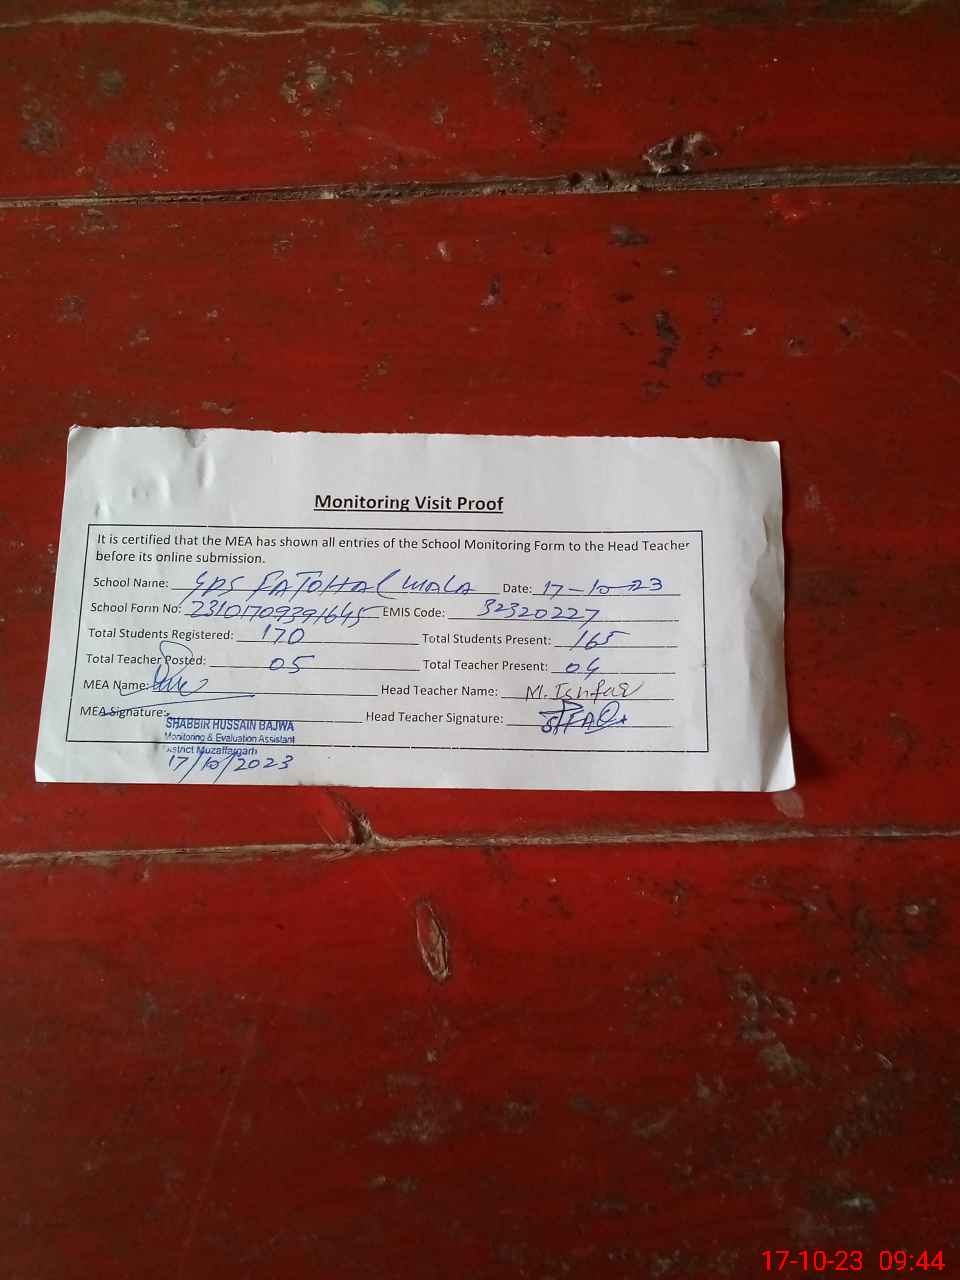 Monitoring Visit Proof
It is certified that the MEA has shown all entries of the School Monitoring Form to the Head Teacher
before its online submission.
School Name: GPS FATOHAL WALA Date: 17-10-23
School Form No: 23101709391645 EMIS Code: 32320227
Total Students Registered: 170 Total Students Present: 165
Total Teacher Posted: 05 Total Teacher Present: 04
MEA Name: Head Teacher Name: M. Ishfaq
MEA Signature: Head Teacher Signature:
SHABBIR HUSSAIN BAJWA
Monitoring & Evaluation Assistant
District Muzaffargarh
17/10/2023
17-10-23 09:44